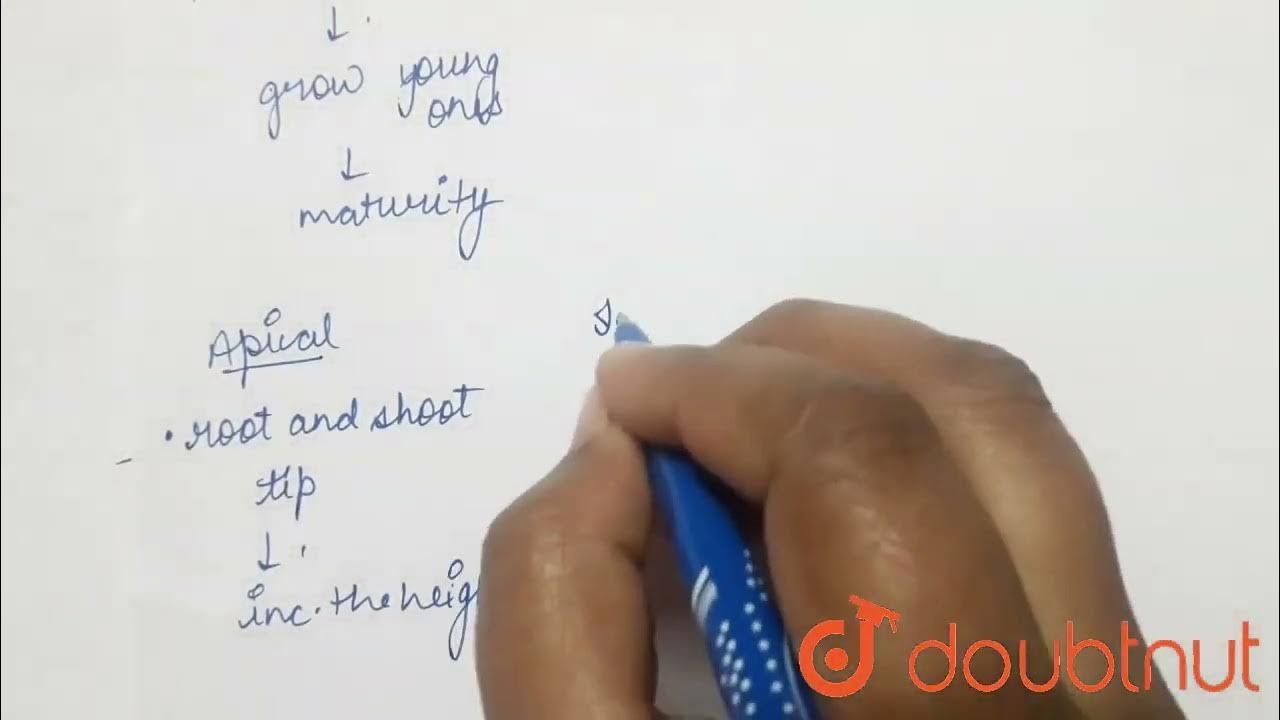 ↓ .
grow young
ones
↓
maturity
Apical
• root and shoot
tip
↓ .
inc. the heig
doubtnut